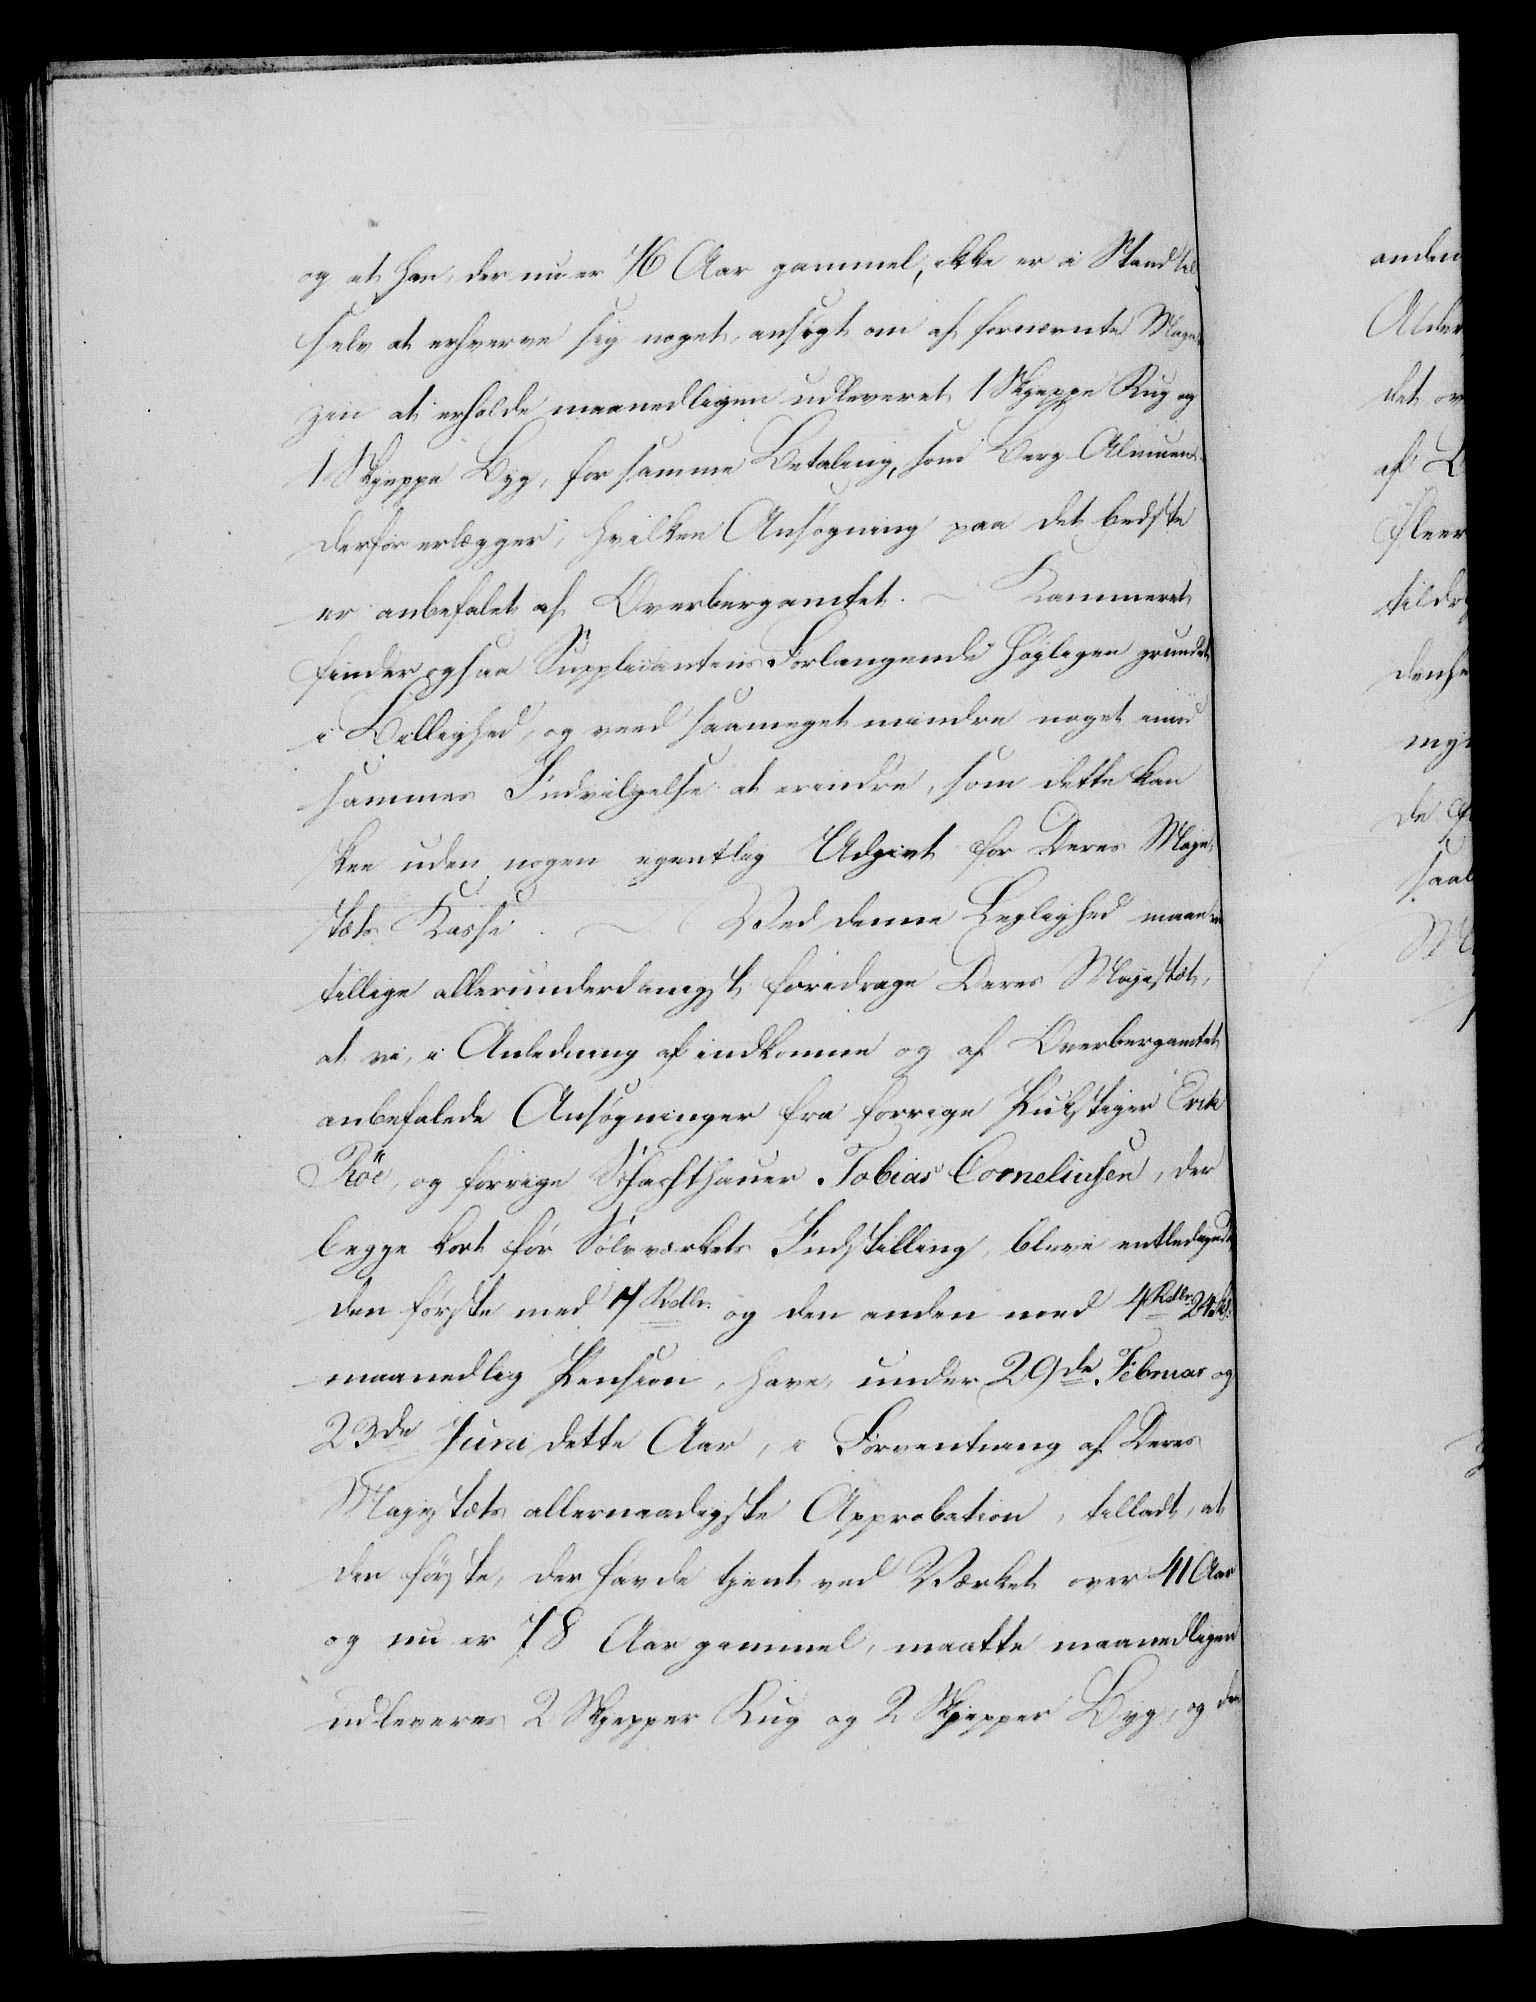 og at han, der nu er 76 Aar gammel, ikke er i Stand til
selv at erhverve sig noget, ansøgt om af fornævnte Maga-
zin at erholde maanedligen udleveret 1 Skjeppe Rug og
1 Skjeppe Byg, for samme Betaling, som Berg-Almuen
derfor erlægger, hvilken Ansøgning paa det bedste
er anbefalet af Overbergamtet. Kammeret
finder ogsaa Supplicantens Forlangende høyligen grundet
i Billighed, og veed saameget mindre noget imod
sammes Indvilgelse at erindre, som dette kan
skee uden nogen egentlig Udgivt for Deres Maje-
stæts Kasse. Ved denne Leylighed maae vi
tillige allerunderdanigst foredrage Deres Majestæt,
at vi, i Anledning af indkomne og af Overbergamtet
anbefalede Ansøgninger fra forrige Pukstiger Erik
Röe, og forrige Schachthauer Tobias Corneliusen, der
begge kort för Sölvværkets Indstilling, bleve entlediget
den förste med 7 Rdlr. og den anden med 4 Rdlr. 24 sk.
maanedlig Pension, have, under 29de Februar og
23de Juni dette Aar, i Forventning af Deres
Majestæts allernaadigste Approbation, tilladt, at
den förste, der havde tjent ved Værket over 41 Aar
og nu er 78 Aar gammel, maatte maanedligen
udleveres 2 Skjepper Rug og 2 Skjepper Byg, og den
anden
Alder
det ov
af
fleer
tildr
dense
myn
de
saal